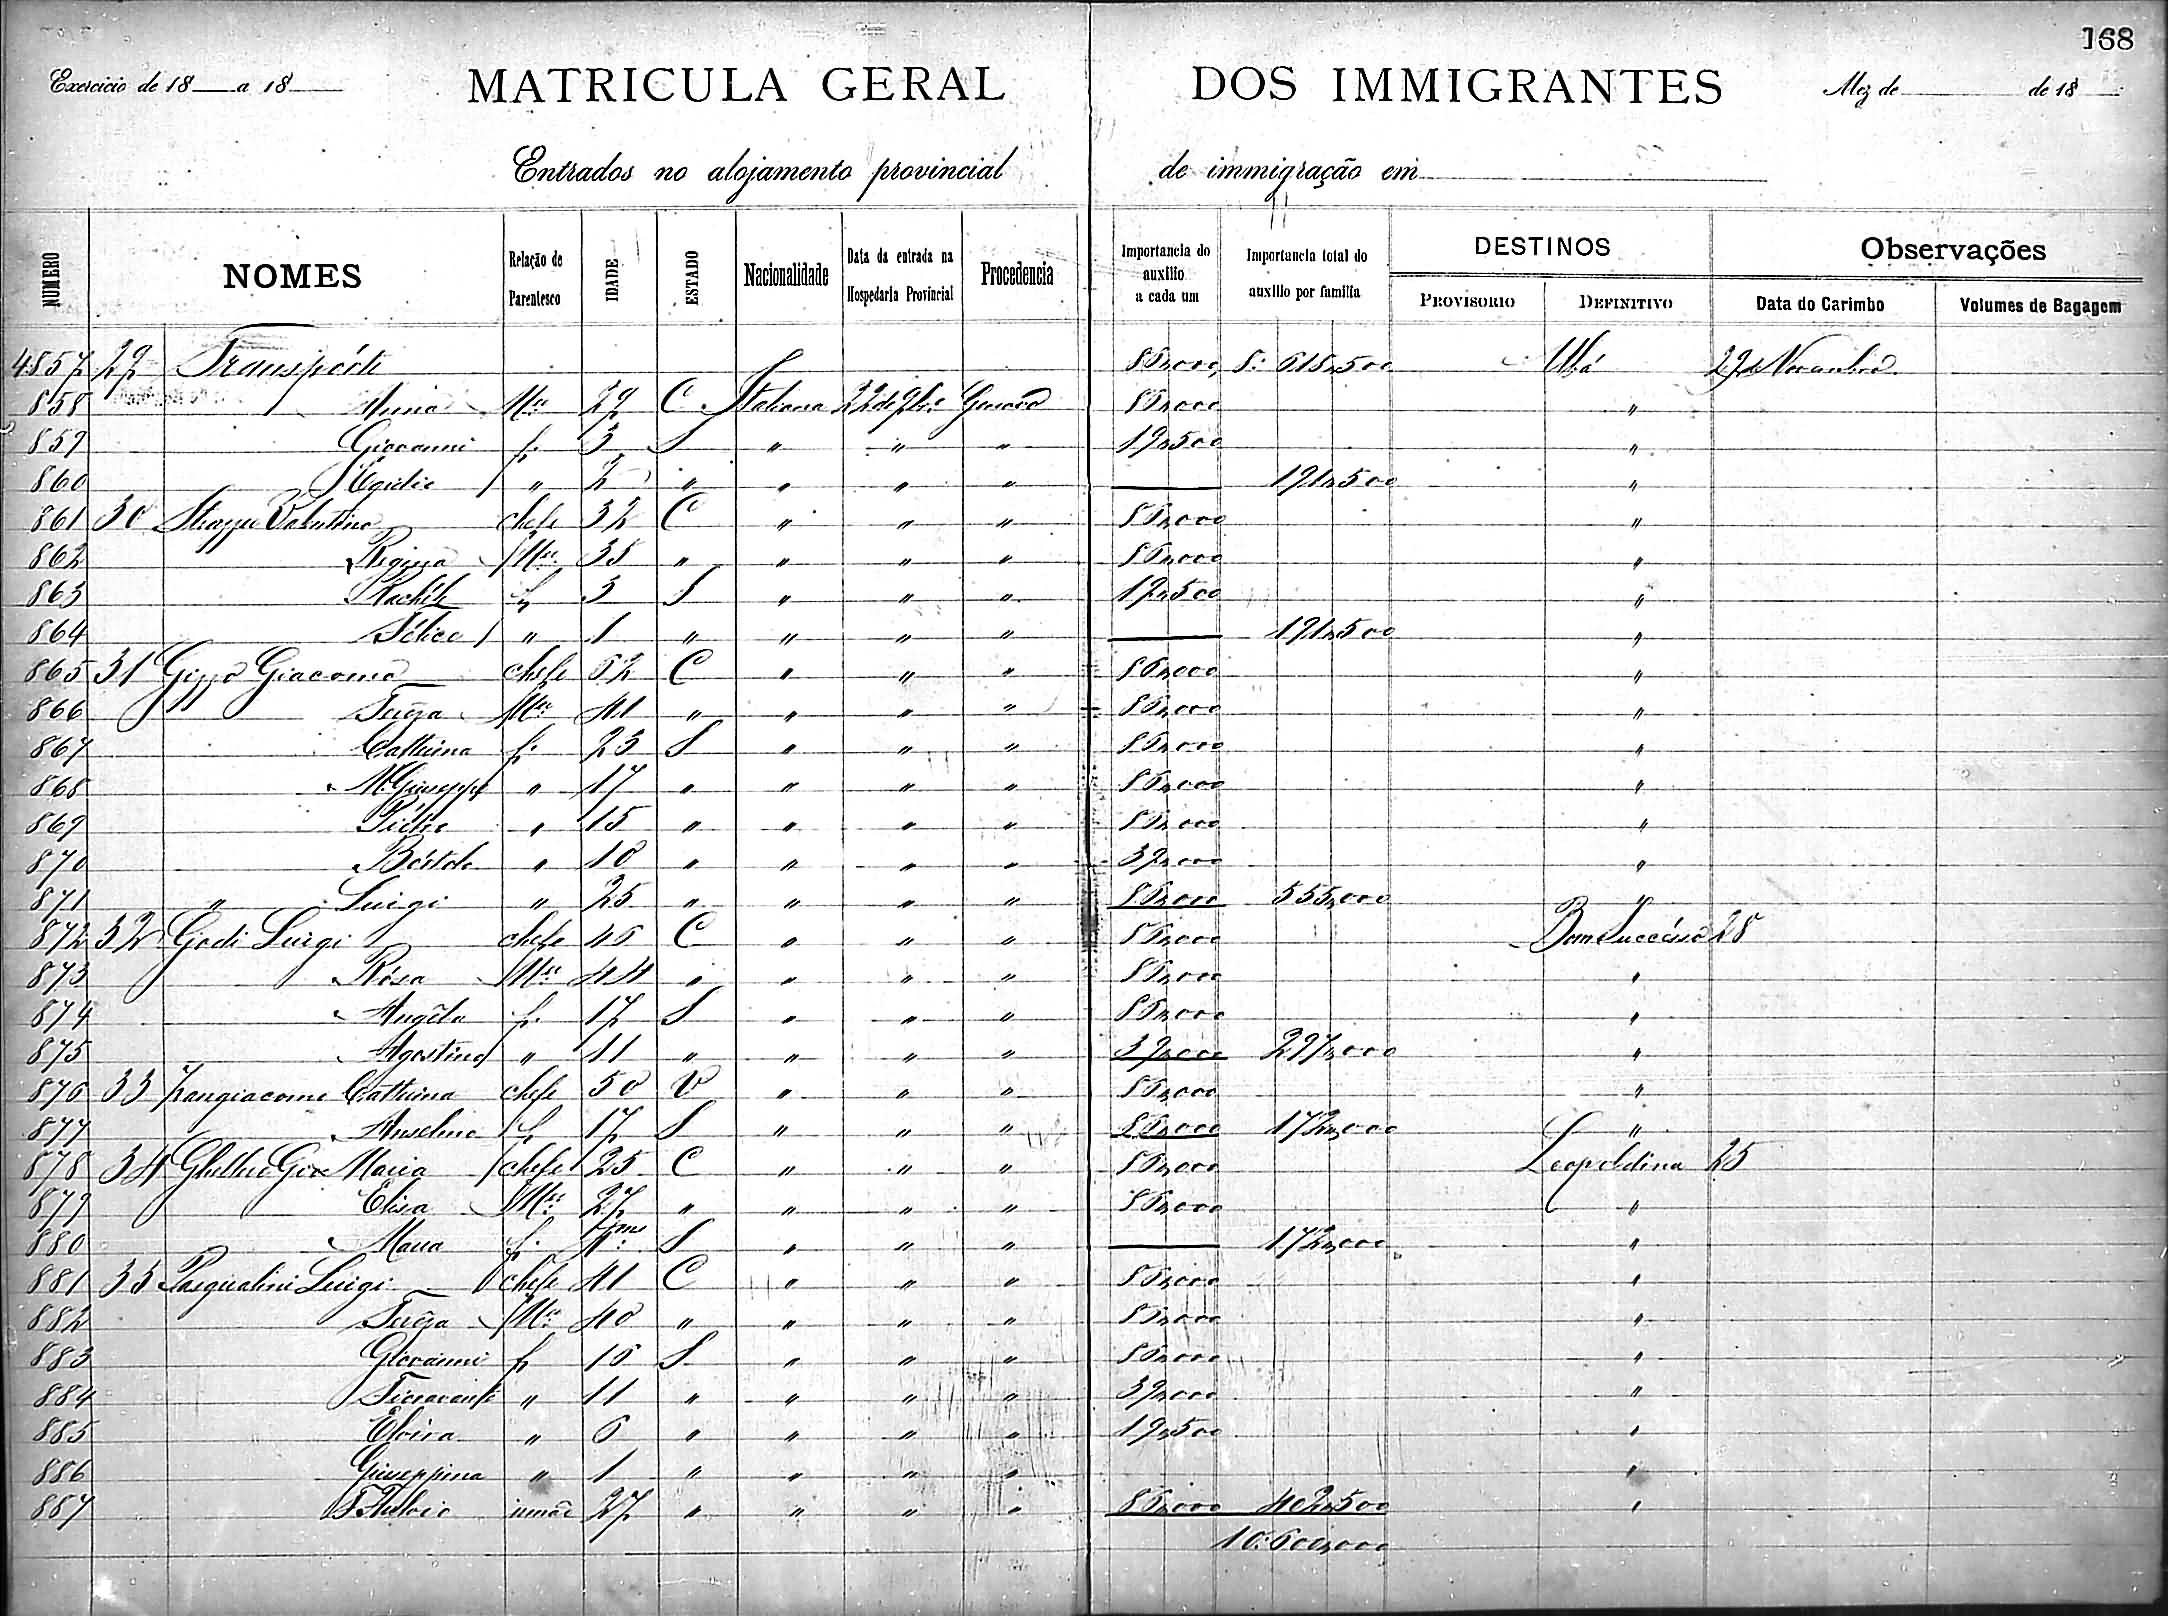 168
Exercicio de 18 a 18 MATRICULA GERAL DOS IMMIGRANTES Mez de de 18
Entrados no alojamento provincial de immigração em
NUMERO NOMES Relação de Parentesco IDADE ESTADO Nacionalidade Data da entrada na Hospedaria Provincial Procedencia Importancia do auxilio a cada um Importancia total do auxilio por familia DESTINOS Observações
PROVISORIO DEFINITIVO Data do Carimbo Volumes de Bagagem
4857 29 Transpórte 86,000 8:618,500 Ubá 29 de Novembro
858 Anna Mer 29 C Italiana 22 de 9bro Genova 86,000 "
859 Giovanni f. 3 S " " " 19,500 "
860 " 2 " " " " 191,500 "
861 30 Valentino chefe 32 C " " " 86,000 "
862 Regina Mer 35 " " " " 86,000 "
863 Rachele f 3 S " " " 19,500 "
864 Felice " 1 " " " " 191,500 "
865 31 Giacomo chefe 52 C " " " 86,000 "
866 Mer 41 " " " " 86,000 "
867 Catterina f. 23 S " " " 86,000 "
868 M. Giuseppe " 17 " " " " 86,000 "
869 Pietro " 15 " " " " 86,000 "
870 Bortolo " 10 " " " " 39,000 "
871 " Luigi " 25 " " " " 86,000 555,000 "
872 32 Godi Luigi chefe 46 C " " " 86,000 Bom Succésso 28
873 Rósa Mer 44 " " " " 86,000 "
874 Angéla f. 17 S " " " 86,000 "
875 Agostino " 11 " " " " 39,000 297,000 "
876 33 Zangiacomo Catterina chefe 50 V " " " 86,000 "
877 Anselmo f 17 S " " " 86,000 172,000 "
878 34 Maria chefe 25 C " " " 86,000 Leopoldina 25
879 Elisa Mer 27 " " " " 86,000 "
880 Maria f. S " " " 172,000 "
881 35 Pasqualini Luigi chefe 41 C " " " 86,000 "
882 Mer 40 " " " " 86,000 "
883 Giovanni f 16 S " " " 86,000 "
884 Fioravante " 11 " " " " 39,000 "
885 Elvira " 6 " " " " 19,500 "
886 Giuseppina " 1 " " " " "
887 irmão 27 " " " " 86,000 402,500 "
10:600,000